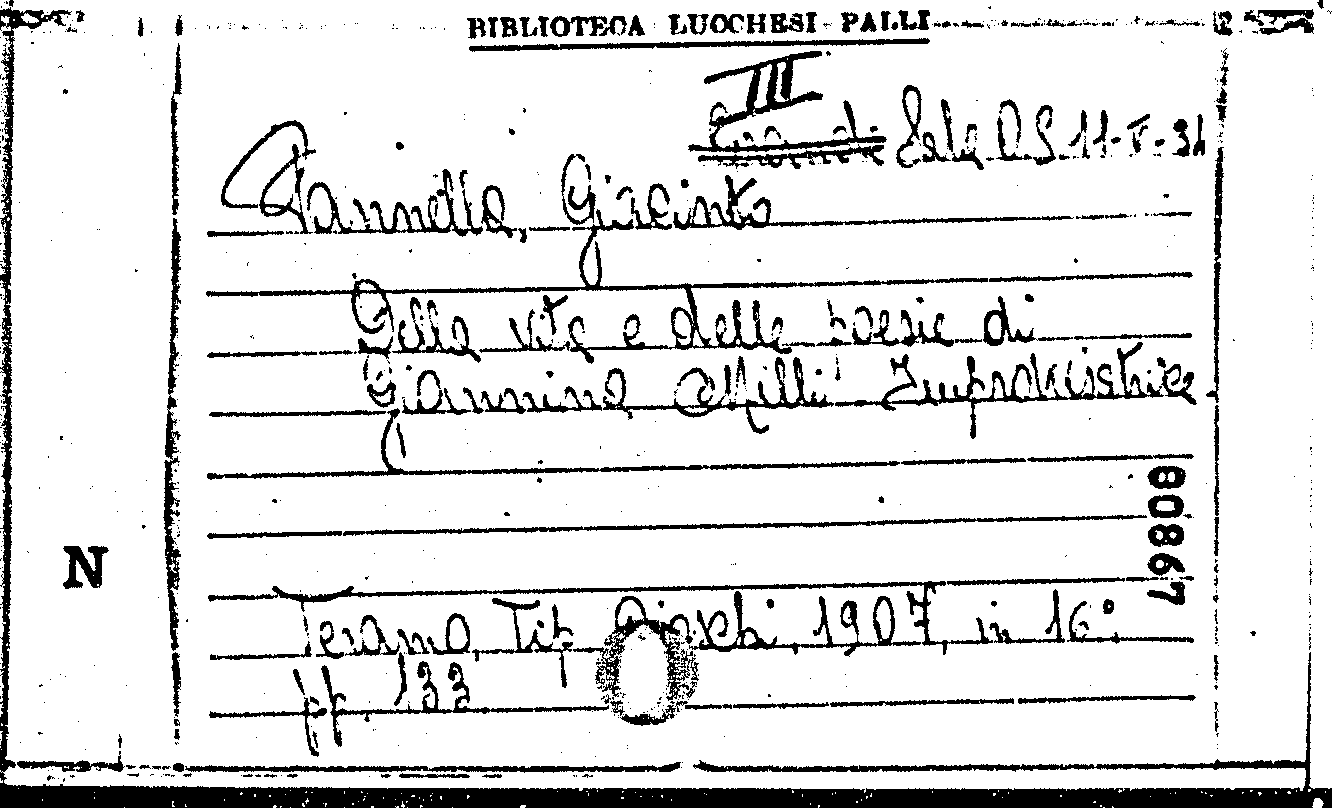 BIBLIOTECA LUCCHESI PALLI
III
Grande Sala DS 11-V-31
Pannella, Giacinto
Della vita e delle poesie di
Giannina Milli Improvvisatrice
N
80867
Teramo, Tip. 1907, in 16°
pp. 133